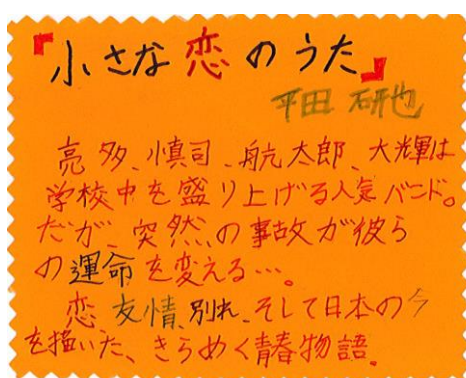 『小さな恋のうた』
平田 研也
亮多、慎司、航太郎、大輝は
学校中を盛り上げる人気バンド。
だが、突然の事故が彼ら
の運命を変える…。
恋、友情、別れ、そして日本の今
を描いた、きらめく青春物語。